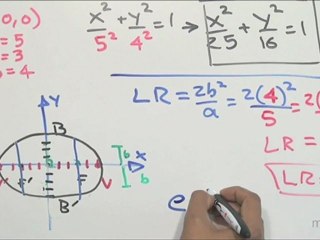 0, 0)
= 5
= 3
= 4
x²/5² + y²/4² = 1 → x²/25 + y²/16 = 1
LR = 2b²/a = 2(4)²/5 = 2
LR =
LR =
Y
B
b
X
b
V' F' F V
B'
e